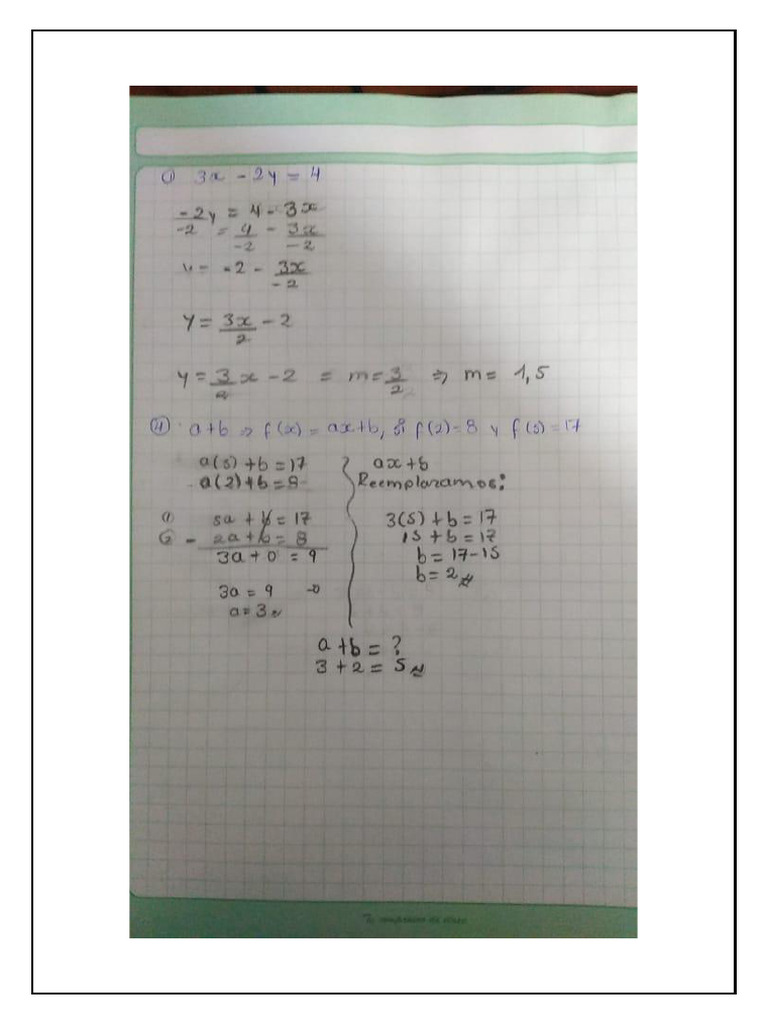 1) 3x - 2y = 4
-2y = 4 - 3x
-2 = 4/-2 - 3x/-2
y = -2 - 3x/-2
y = 3x/2 - 2
y = 3/2 x - 2 = m = 3/2 ⇒ m = 1,5
4) a+b ⇒ f(x) = ax+b, si f(2)=8 y f(5)=17
a(5)+b=17
a(2)+b=8
① 5a + b = 17
② - 2a + b = 8
3a + 0 = 9
3a = 9
a = 3
ax+b
Reemplazamos:
3(5) + b = 17
15 + b = 17
b = 17-15
b = 2
a + b = ?
3 + 2 = 5